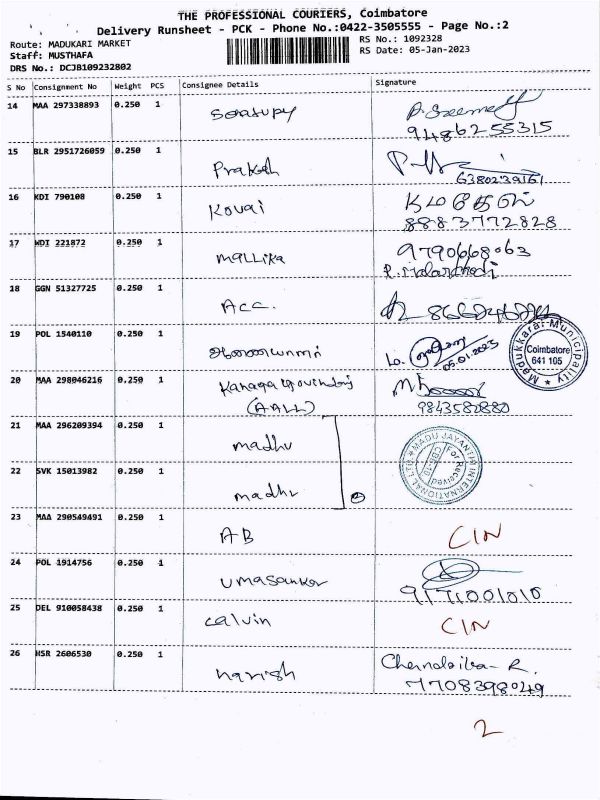 THE PROFESSIONAL COURIERS, Coimbatore
Delivery Runsheet - PCK - Phone No.:0422-3505555 - Page No.:2
Route: MADUKARI MARKET
RS No.: 1092328
Staff: MUSTHAFA
RS Date: 05-Jan-2023
DRS No.: DCJB109232802
S No Consignment No Weight PCS Consignee Details Signature
14 MAA 297338893 0.250 1
9486255315
15 BLR 2951726059 0.250 1 Prakash
6380239161
16 KDI 790108 0.250 1 Kovai
8883772828
17 WDI 221872 0.250 1 Mallika 9790668063
18 GGN 51327725 0.250 1 Acc.
19 POL 1540110 0.250 1
05.01.2023
Madukkarai Municipality
Coimbatore
641 105
20 MAA 298046216 0.250 1 Kanagagovindaraj
(AALL) 9843580880
21 MAA 296209394 0.250 1 madhu
MADU JAYANTHI INTERNATIONAL LTD
For Received
CBE-10
22 SVK 15013982 0.250 1 madhu 2
23 MAA 290549491 0.250 1 AB CIN
24 POL 1914756 0.250 1 Umasankar
9171001010
25 DEL 910058438 0.250 1 calvin CIN
26 HSR 2606530 0.250 1 harish
7708398049
2